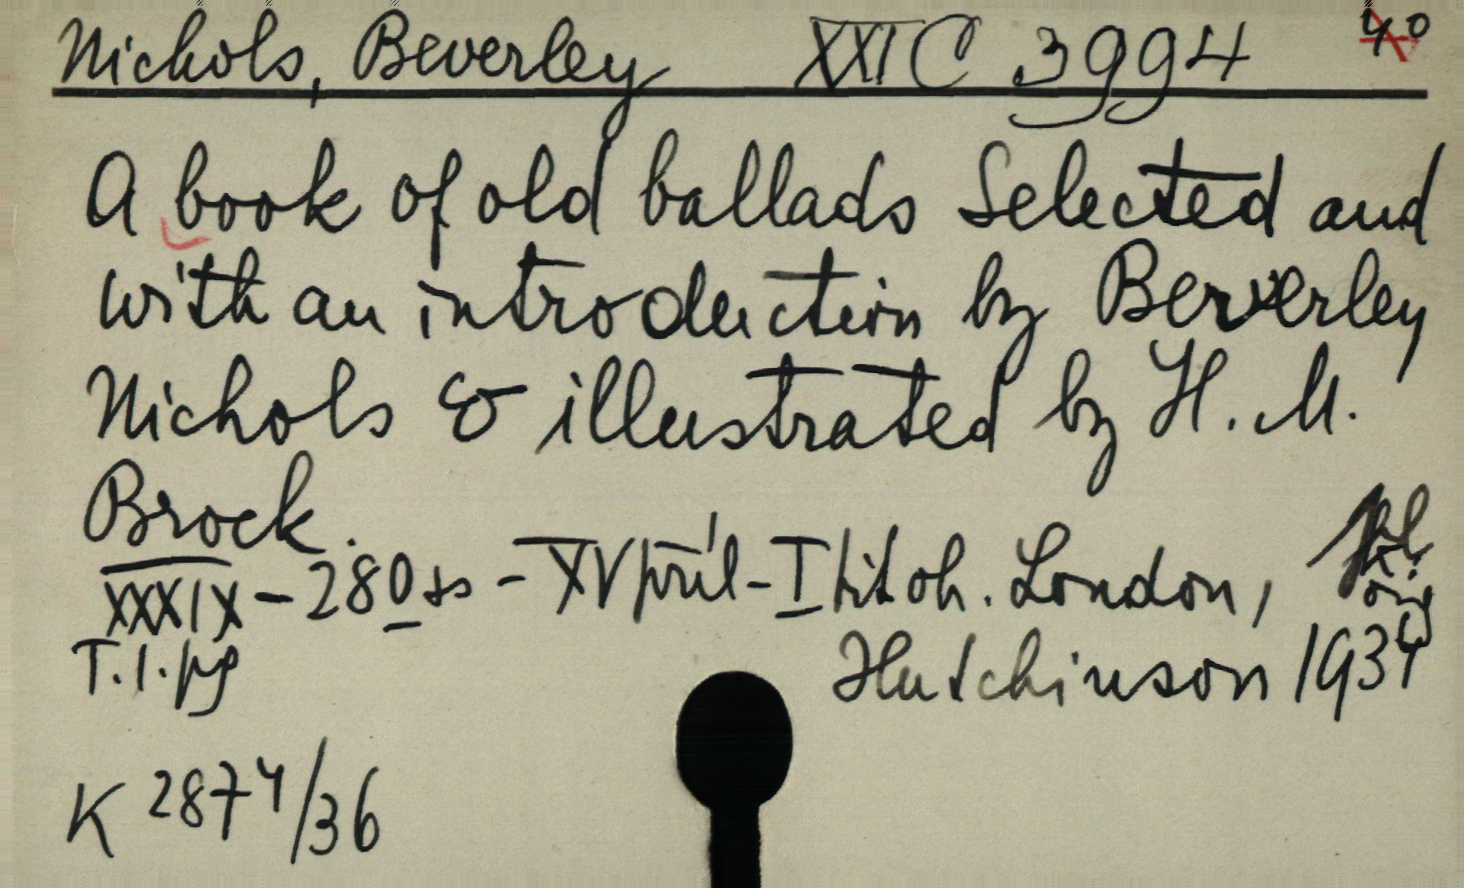 Nichols, Beverley XXI C 3994 4°
A book of old ballads Selected and
with an introduction by Beverley
Nichols & illustrated by H. M.
Brock.
XXXIX - 280 ss - XV příl - I tit ob. London,
T.1.pg Hutchinson 1934
K 2874/36